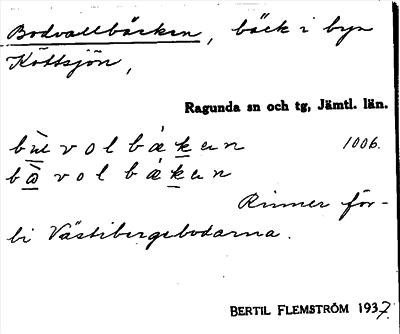 Bodvallbäcken, bäck i byn
Köttsjön,
Ragunda sn och tg, Jämtl. län.
1006.
Rinner för-
bi Västibergsbodarna.
BERTIL FLEMSTRÖM 1937.